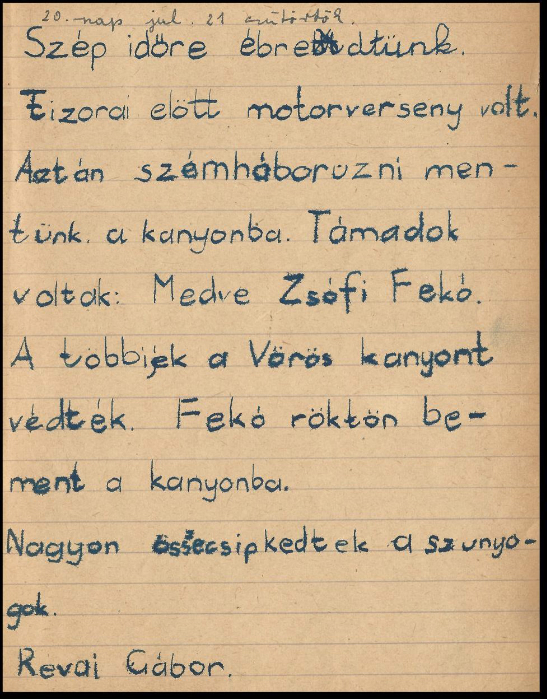 20. nap jul. 21 csütörtök.
Szép időre ébredtünk.
Tizorai elött motorverseny volt.
Aztán számháboruzni men-
tünk. a kanyonba. Támadok
voltak: Medve Zsófi Fekó.
A többijek a Vörös kanyont
védték. Fekó röktön be-
ment a kanyonba.
Nagyon összecsipkedtek a szunyo-
gok.
Révai Gábor.